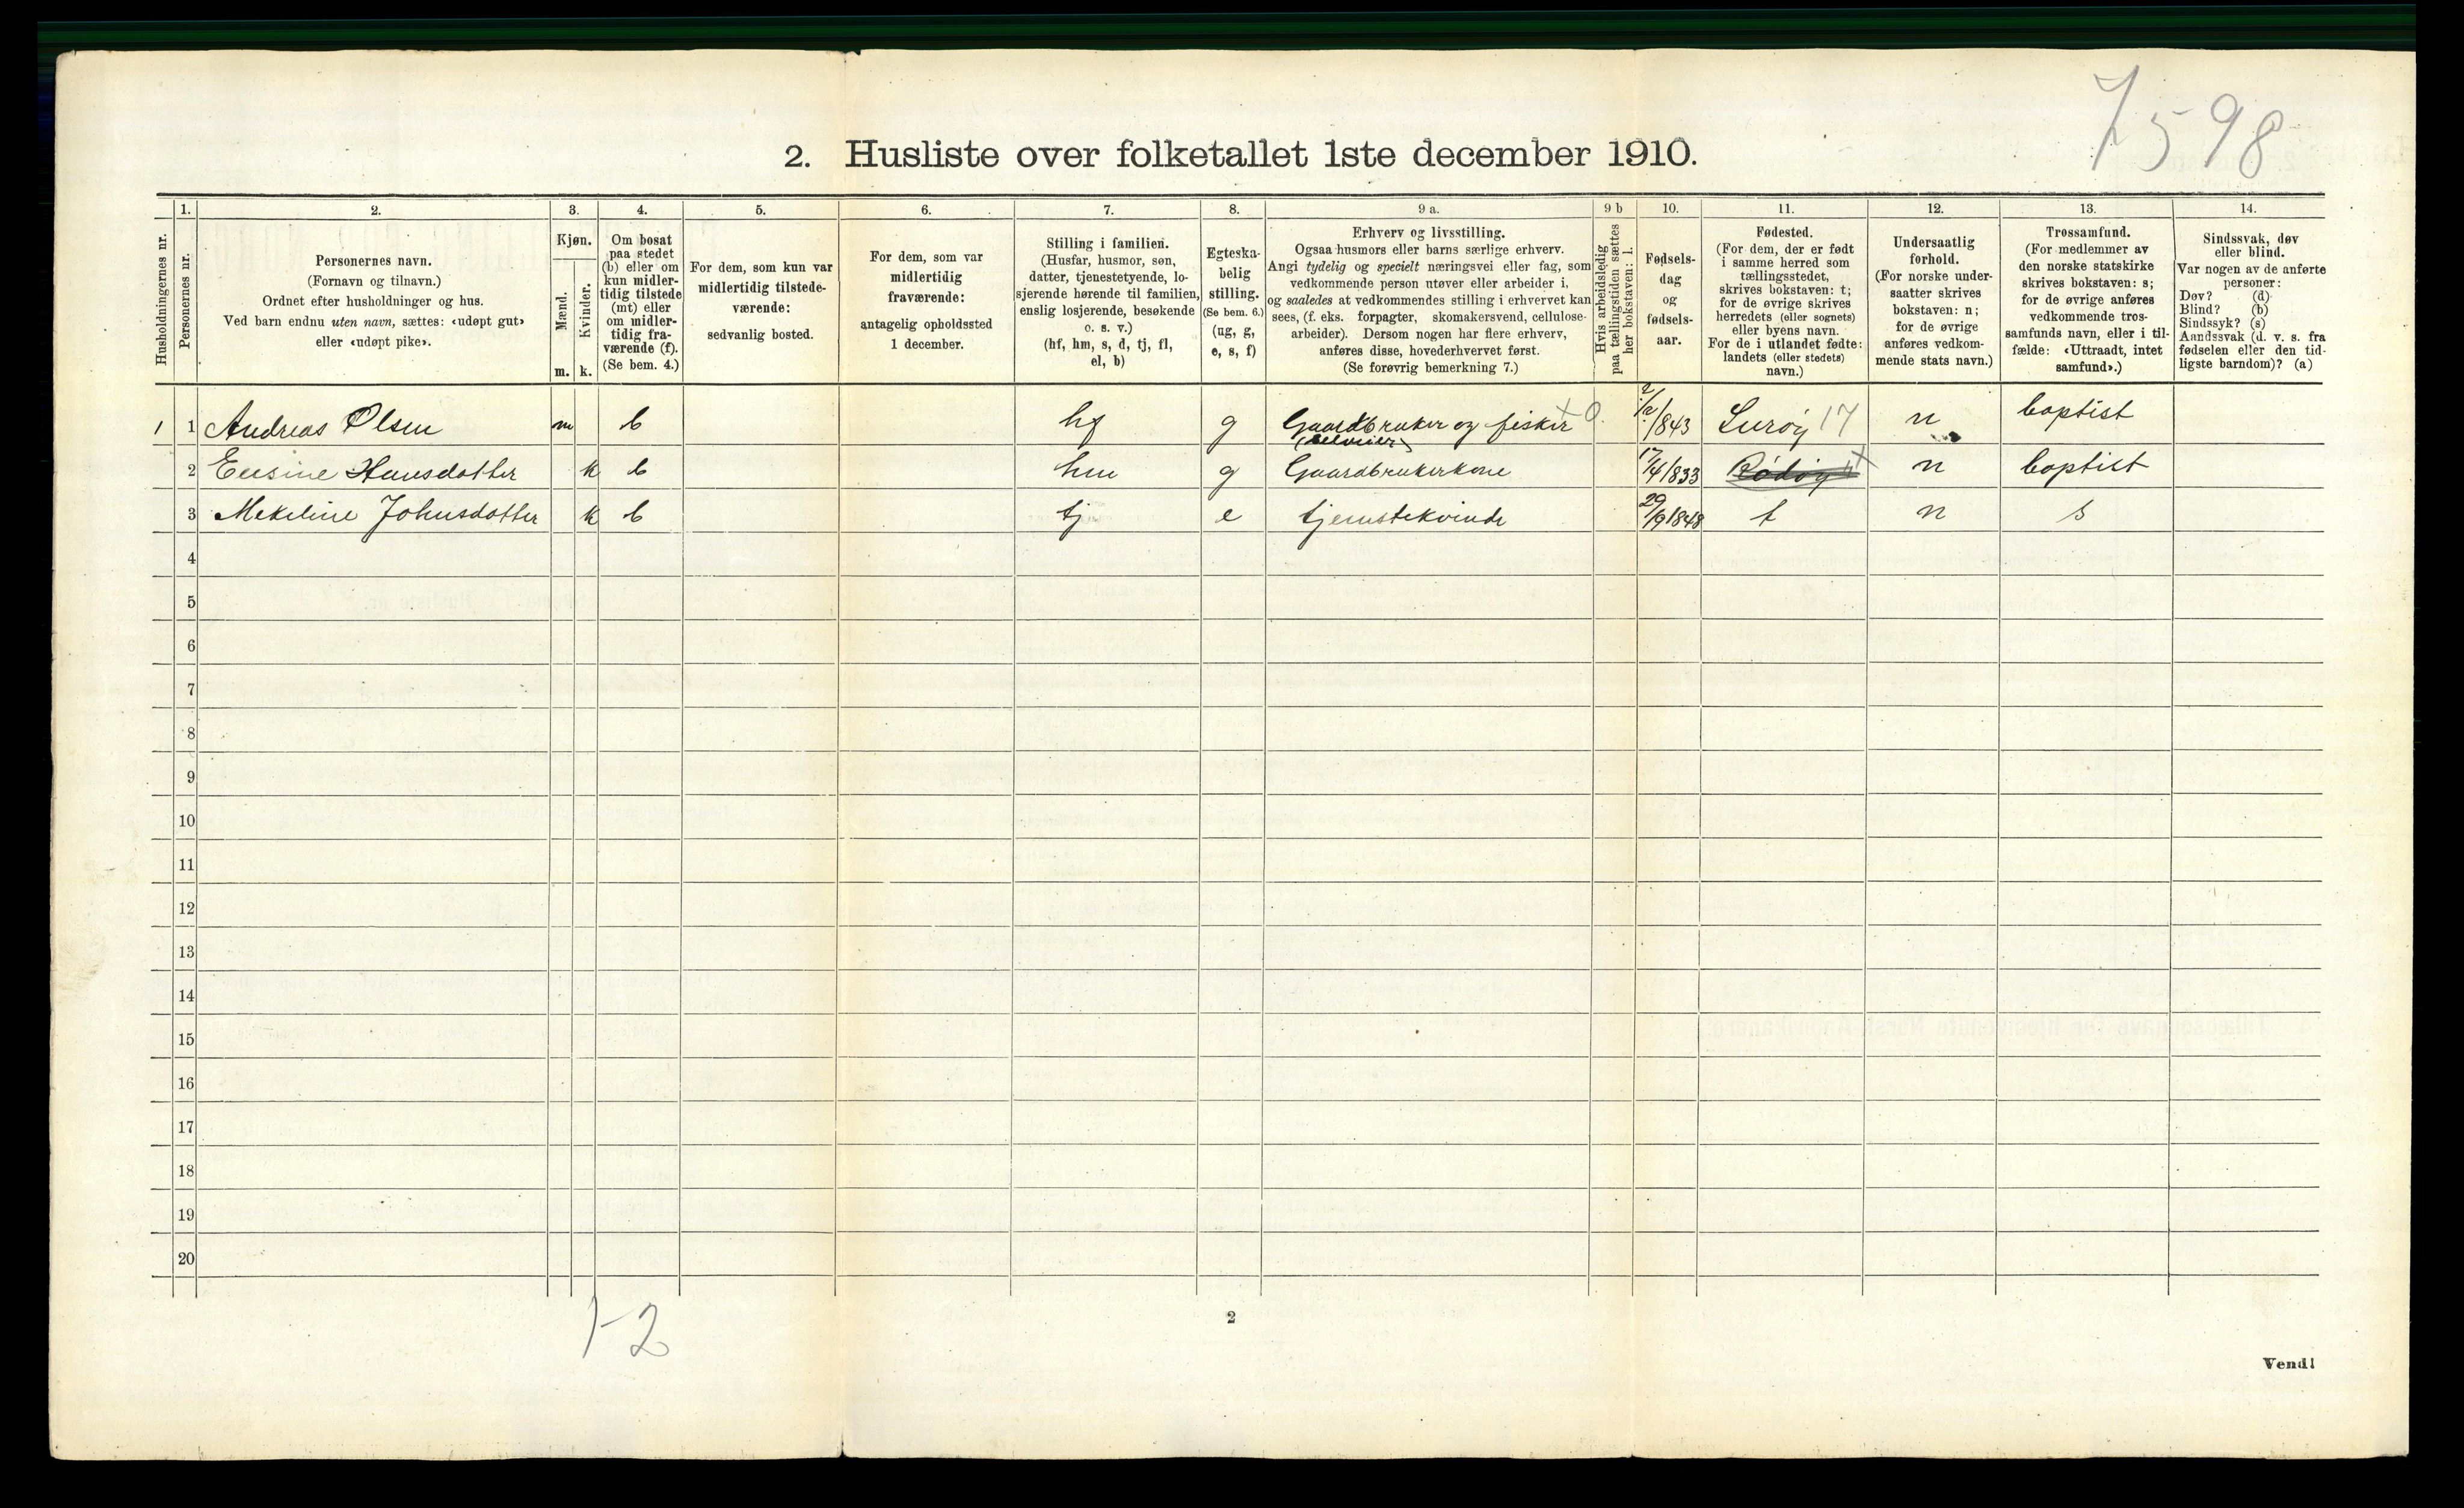 7598
2. Husliste over folketallet 1ste december 1910.
Husholdningernes nr.
1.
Personernes nr.
2.
Personernes navn.
(Fornavn og tilnavn.)
Ordnet efter husholdninger og hus.
Ved barn endnu uten navn, sættes: «udøpt gut»
eller «udøpt pike».
3.
Kjøn.
Mænd.
Kvinder.
m. k.
4.
Om bosat
paa stedet
(b) eller om
kun midler-
tidig tilstede
(mt) eller
om midler-
tidig fra-
værende (f).
(Se bem. 4.)
5.
For dem, som kun var
midlertidig tilstede-
værende:
sedvanlig bosted.
6.
For dem, som var
midlertidig
fraværende:
antagelig opholdssted
1 december.
7.
Stilling i familien.
(Husfar, husmor, søn,
datter, tjenestetyende, lo-
sjerende hørende til familien,
enslig losjerende, besøkende
o. s. v.)
(hf, hm, s, d, tj, fl,
el, b)
8.
Egteska-
belig
stilling.
(Se bem. 6.)
(ug, g,
e, s, f)
9 a.
Erhverv og livsstilling.
Ogsaa husmors eller barns særlige erhverv.
Angi tydelig og specielt næringsvei eller fag, som
vedkommende person utøver eller arbeider i,
og saaledes at vedkommendes stilling i erhvervet kan
sees, (f. eks. forpagter, skomakersvend, cellulose-
arbeider). Dersom nogen har flere erhverv,
anføres disse, hovederhvervet først.
(Se forøvrig bemerkning 7.)
9 b
Hvis arbeidsledig
paa tællingstiden sættes
her bokstaven: l.
10.
Fødsels-
dag
og
fødsels-
aar.
11.
Fødested.
(For dem, der er født
i samme herred som
tællingsstedet,
skrives bokstaven: t;
for de øvrige skrives
herredets (eller sognets)
eller byens navn.
For de i utlandet fødte:
landets (eller stedets)
navn.)
12.
Undersaatlig
forhold.
(For norske under-
saatter skrives
bokstaven: n;
for de øvrige
anføres vedkom-
mende stats navn.)
13.
Trossamfund.
(For medlemmer av
den norske statskirke
skrives bokstaven: s;
for de øvrige anføres
vedkommende tros-
samfunds navn, eller i til-
fælde: «Uttraadt, intet
samfund».)
14.
Sindssvak, døv
eller blind.
Var nogen av de anførte
personer:
Døv? (d)
Blind? (b)
Sindssyk? (s)
Aandssvak (d. v. s. fra
fødselen eller den tid-
ligste barndom)? (a)
1 1 Andreas Olsen m b hf g Gaardbruker og fisker x 0. 2/12/843 Lurøy 17 n baptist
(selveier)
2 Hansdatter k b hm g Gaardbrukerkone 17/4/833 Rødøy x n baptist
3 Mekeline Johnsdatter k b tj e tjenestekvinde 29/9 1848 t n s
4
5
6
7
8
9
10
11
12
13
14
15
16
17
18
19
20
1-2
2
Vend!